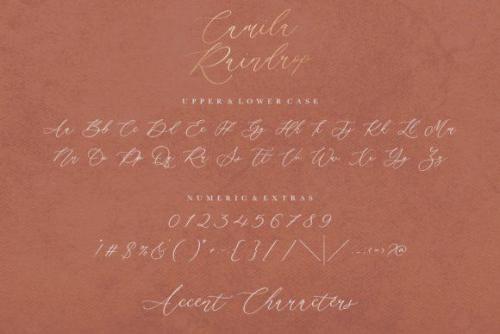 Camila
Raindrop
UPPER & LOWER CASE
Aa Bb Cc Dd Ee Ff Gg Hh Ii Jj Kk Ll Mm
Nn Oo Pp Qq Rr Ss Tt Uu Vv Ww Xx Yy Zz
NUMERIC & EXTRAS
0 1 2 3 4 5 6 7 8 9
Accent Characters